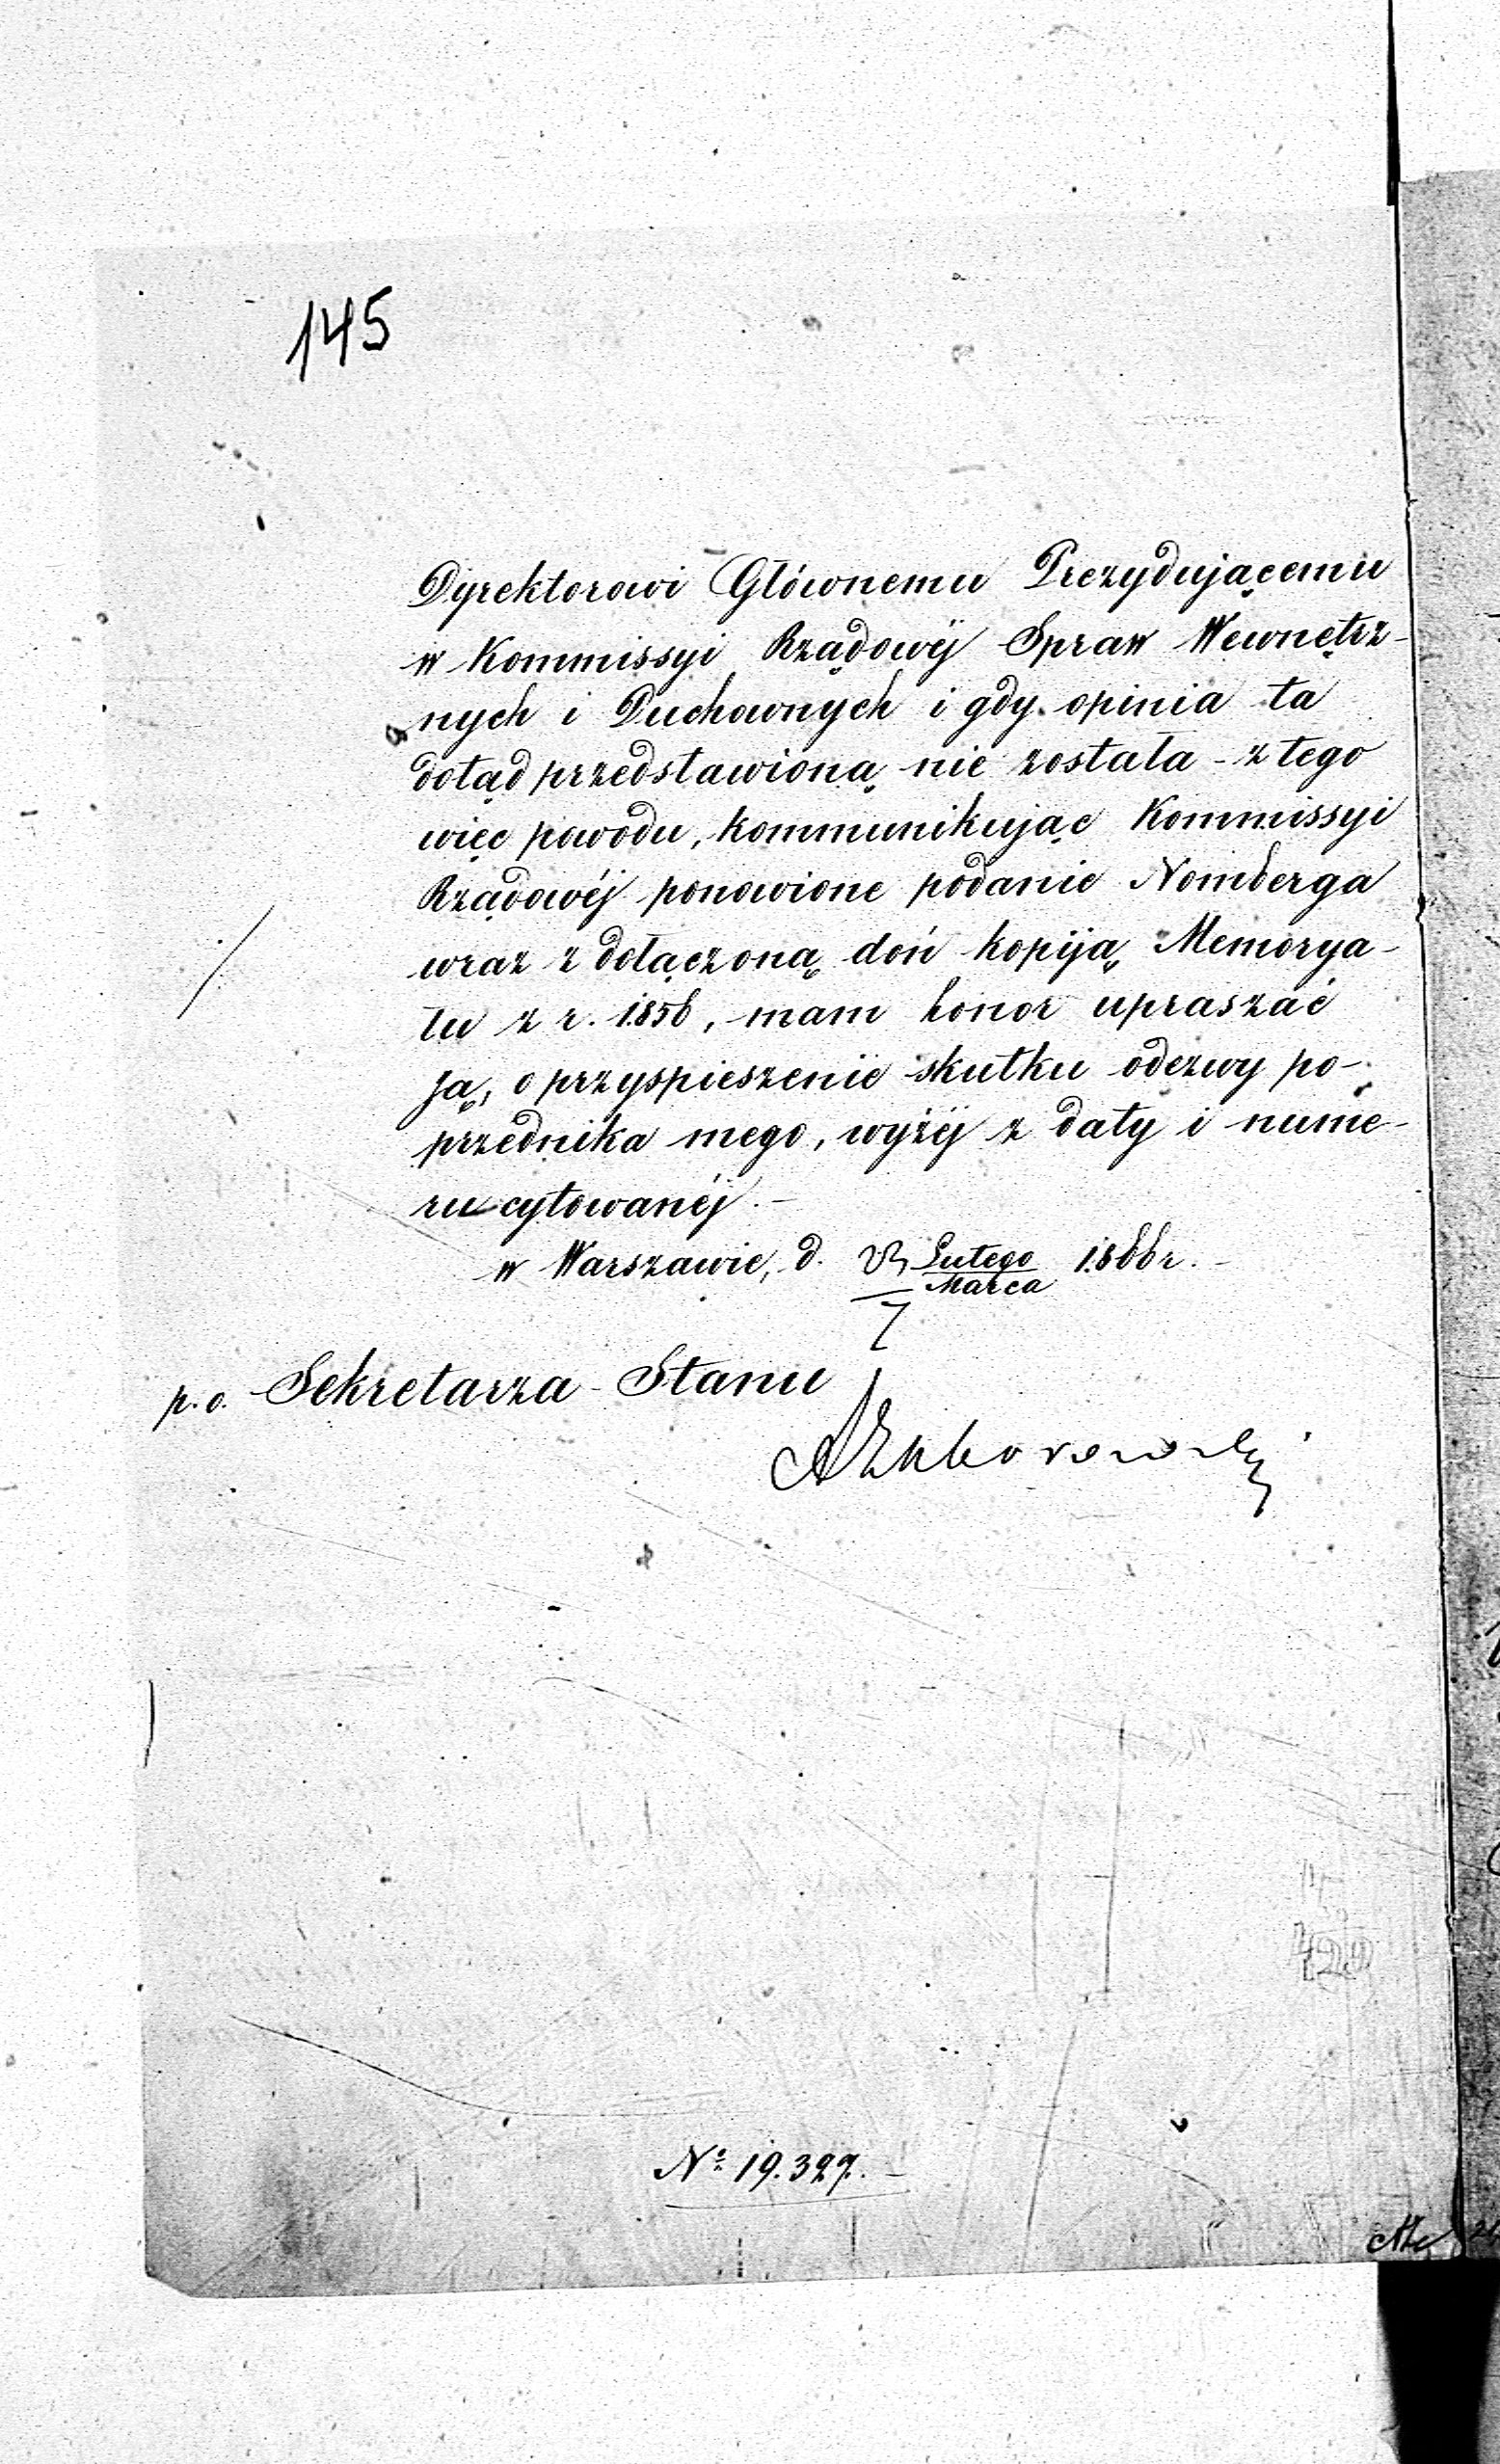 145
Dyrektorowi Głównemu Prezydującemu
w Kommissyi Rządowéj Spraw Wewnętrz-
nych i Duchownych i gdy opinia ta
dotąd przedstawioną nie została - z tego
więc powodu, kommunikując Kommissyi
Rządowéj ponowione podanie Nomberga
wraz z dołączoną doń kopiją Memorya-
łu z r. 1856, mam honor upraszać
ją, o przyspieszenie skutku odezwy po-
przednika mego, wyżéj z daty i nume-
ru cytowanéj. -
w Warszawie, d. Lutego 1866 r. -
Marca
7
p.o. Sekretarza Stanu
AZaborowski
№ 19.327. -